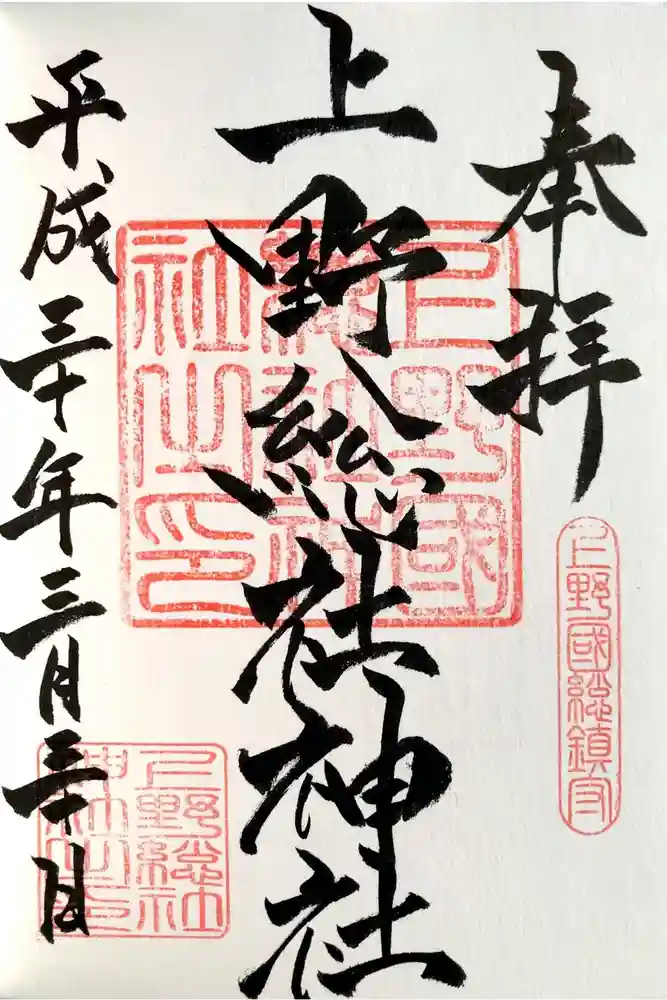 奉拝
上野國総鎮守
上野総社神社
上野國
総社神
社之印
平成三十年三月三十日
上野総社
神社之印